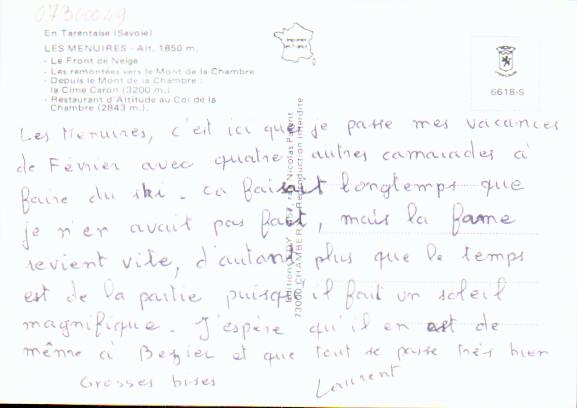 07300049
En Tarentaise (Savoie)
LES MENUIRES - Alt. 1850 m.
- Le Front de Neige
- Les remontées vers le Mont de la Chambre
- Depuis le Mont de la Chambre :
la Cime Caron (3200 m.)
- Restaurant d'Altitude au Col de la
Chambre (2843 m.).
imprimé
en France
6618-S
rue Nicolas Parent
73000 CHAMBERY Reproduction interdite
Les Menuires, c'est ici que je passe mes vacances
de Février avec quatre autres camarades à
faire du ski. ca faisait longtemps que
je n'en avait pas fait, mais la fame
revient vite, d'autant plus que le temps
est de la partie puisqu'il fait un soleil
magnifique. J'espère qu'il en est de
même à Bezier et que tout se passe très bien
Grosses bises
Laurent